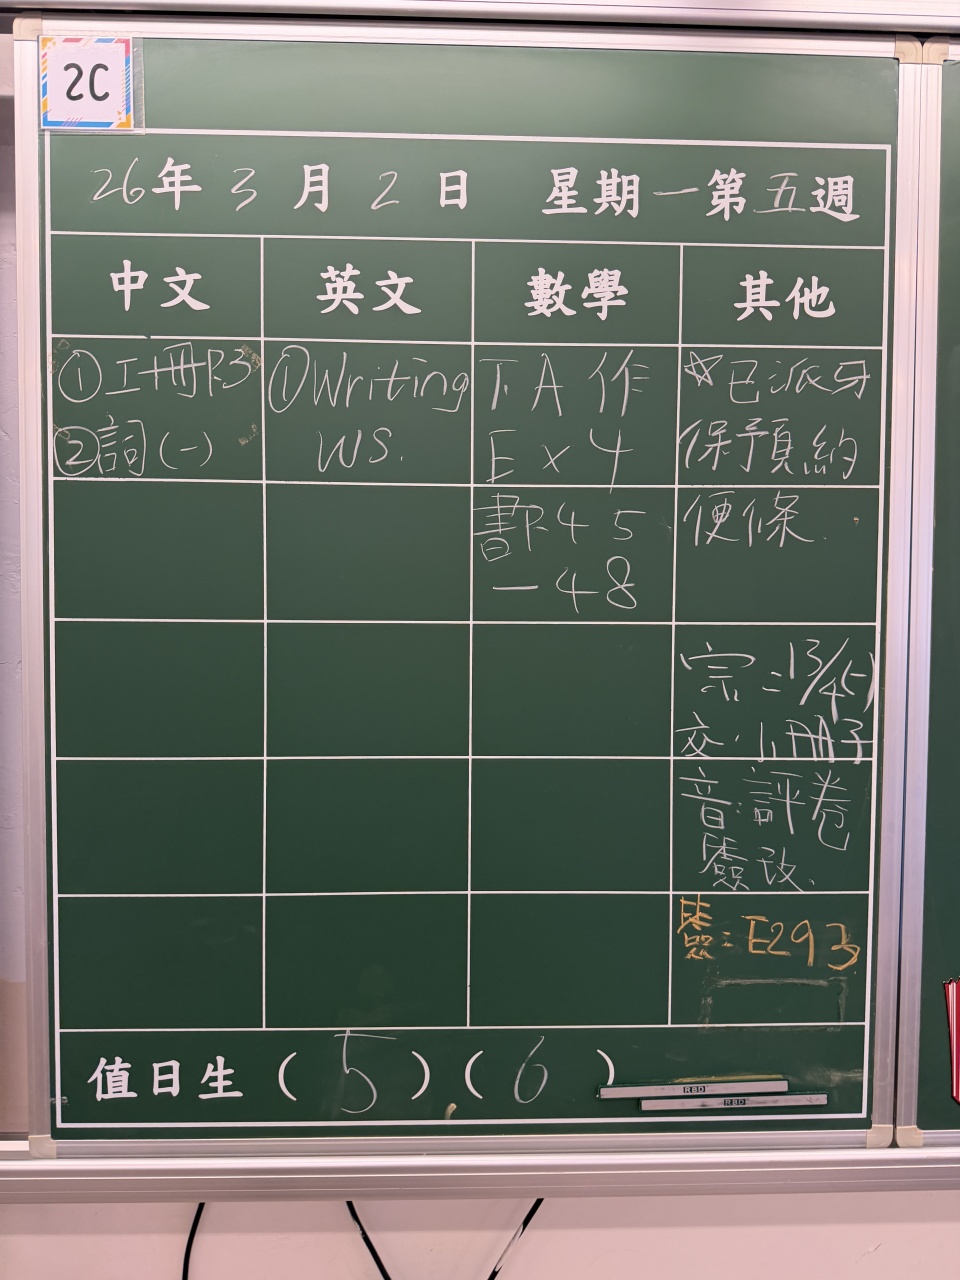 2C
26年3月2日 星期一第五週
中文 英文 數學 其他
①工冊P.3
②詞(一)
①Writing
WS.
下A作
Ex4
書P.45
-48
☆已派牙
保預約
便條.
宗:13/4(一)
交小冊子
音:評卷
簽改.
簽:E293
值日生(5)(6)
RBD
RBD